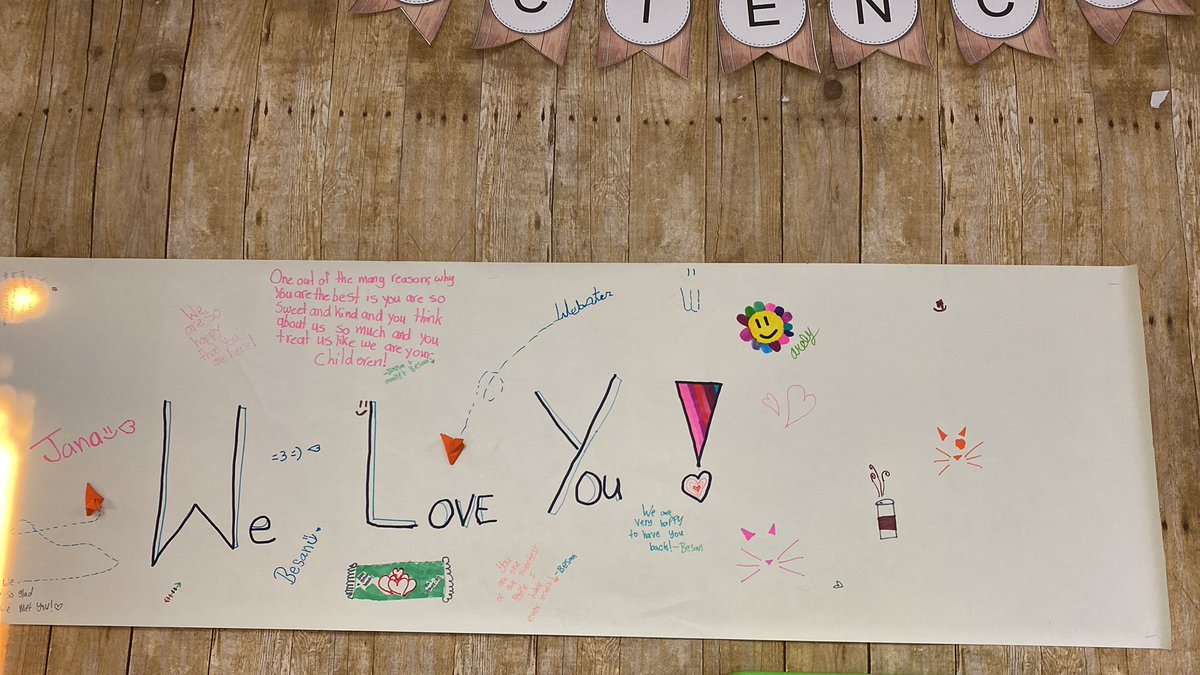 CIENC
One out of the many reasons why
You are the best is you are so
Sweet and kind and you think
about us so much and you
treat us like we are your
Childeren!
We
are so
happy
that you
Webster
W
arely
Jana
=3=)
We LOVE You!
Besan
We are
very happy
to have you
back!-Besan
-Besan
We
so glad
we met you!